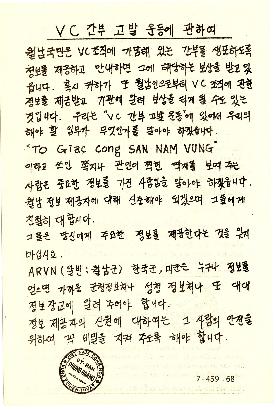 VC 간부 고발 운동에 관하여
월남국민은 VC 조직에 가담해 있는 간부를 생포하도록
정보를 제공하고 안내하면 그에 해당하는 보상을 받고 있
읍니다. 혹시 귀하가 또 월남인으로부터 VC 조직에 관한
정보를 제공받고 기관에 알려 보상을 타게 될 수도 있는
것입니다. 우리는 "VC 간부 고발 운동"에 있어서 우리의
해야 할 임무가 무엇인가를 알아야 하겠읍니다.
"TO Giác Cộng SAN NAM VUNG"
이라고 쓰인 쪽지나 관인이 찍힌 딱지를 보여 주는
사람은 중요한 정보를 가진 사람임을 알아야 하겠읍니다.
월남 정보 제공자에 대해 신중해야 되겠으며 그들에게
친절히 대합시다.
그들은 당신에게 중요한 정보를 제공한다는 것을 잊지
마십시요.
ARVN (월남군) 한국군, 미군은 누구나 정보를
얻으면 가까운 군정보처나 성청 정보처나 또 대대
정보 장교에 알려 주어야 합니다.
정보 제공자의 신원에 대하여는 그 사람의 안전을
위하여 꼭 비밀을 지켜 주도록 해야 합니다.
7-459-68